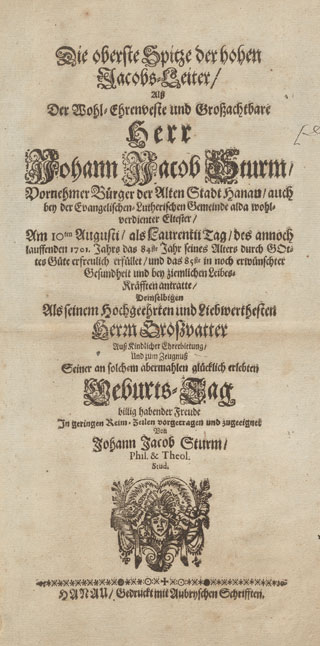 Die oberste Spitze der hohen
Jacobs-Leiter/
Alß
Der Wohl-Ehrenveste und Großachtbare
Herr
Johann Jacob Sturm/
Vornehmer Bürger der Alten Stadt Hanau/ auch
bey der Evangelischen-Lutherischen Gemeinde alda wohl-
verdienter Eltester/
Am 10ten Augusti/ als Laurentii Tag/ des annoch
lauffenden 1701. Jahrs das 84ste Jahr seines Alters durch GOt-
tes Güte erfreulich erfüllet/ und das 85ste in noch erwünschter
Gesundheit und bey ziemlichen Leibes-
Kräfften antratte/
Demselbigen
Als seinem Hochgeehrten und Liebwerthesten
Herrn Großvatter
Auß Kindlicher Ehrerbietung/
Und zum Zeugnuß
Seiner an solchem abermahlen glücklich erlebten
Geburts-Tag
billig habender Freude
In geringen Reim-Zeilen vorgetragen und zugeeignet
Von
Johann Jacob Sturm/
Phil. & Theol.
Stud.
HANAU/ Gedruckt mit Aubryschen Schrifften.